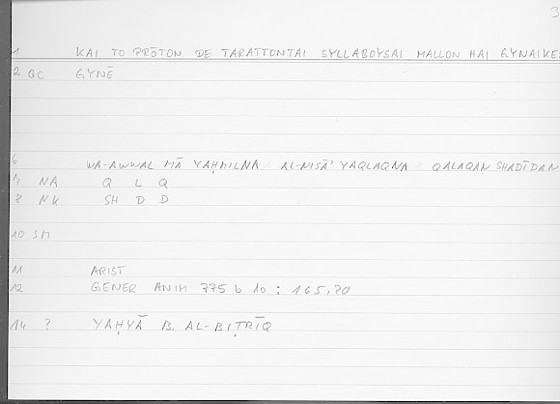 3
1 KAI TO PRŌTON DE TARATTONTAI SYLLABOYSAI MALLON HAI GYNAIKES
2 GC GYNĒ
6 WA-AWWAL MĀ YAḤMILNA AL-NISĀ' YAQLAQNA QALAQAN SHADĪDAN
7 NA Q L Q
8 NK SH D D
10 SM
11 ARIST
12 GENER ANIM 775 b 10 : 165,20
14 ? YAḤYĀ B. AL-BIṬRĪQ